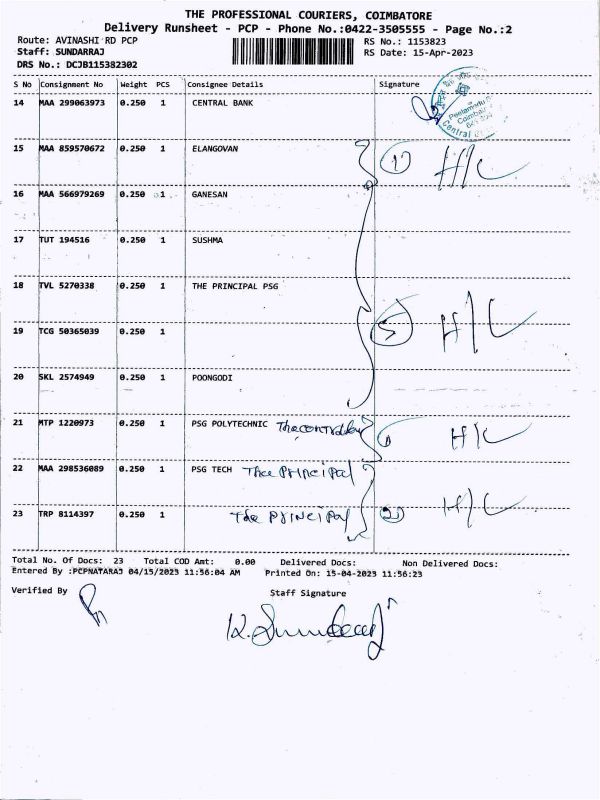 THE PROFESSIONAL COURIERS, COIMBATORE
Delivery Runsheet - PCP - Phone No.:0422-3505555 - Page No.:2
Route: AVINASHI RD PCP RS No.: 1153823
Staff: SUNDARRAJ RS Date: 15-Apr-2023
DRS No.: DCJB115382302
S No Consignment No Weight PCS Consignee Details Signature
14 MAA 299063973 0.250 1 CENTRAL BANK
Peelamedu
Central
15 MAA 859570672 0.250 1 ELANGOVAN 1 H/C
16 MAA 566979269 0.250 1 GANESAN
17 TUT 194516 0.250 1 SUSHMA
18 TVL 5270338 0.250 1 THE PRINCIPAL PSG
19 TCG 50365039 0.250 1 5 H/C
20 SKL 2574949 0.250 1 POONGODI
21 MTP 1220973 0.250 1 PSG POLYTECHNIC 1 H/C
22 MAA 298536089 0.250 1 PSG TECH The Principal
23 TRP 8114397 0.250 1 The Principal 2 H/C
Total No. Of Docs: 23 Total COD Amt: 0.00 Delivered Docs: Non Delivered Docs:
Entered By :PCPNATARAJ 04/15/2023 11:56:04 AM Printed On: 15-04-2023 11:56:23
Verified By Staff Signature